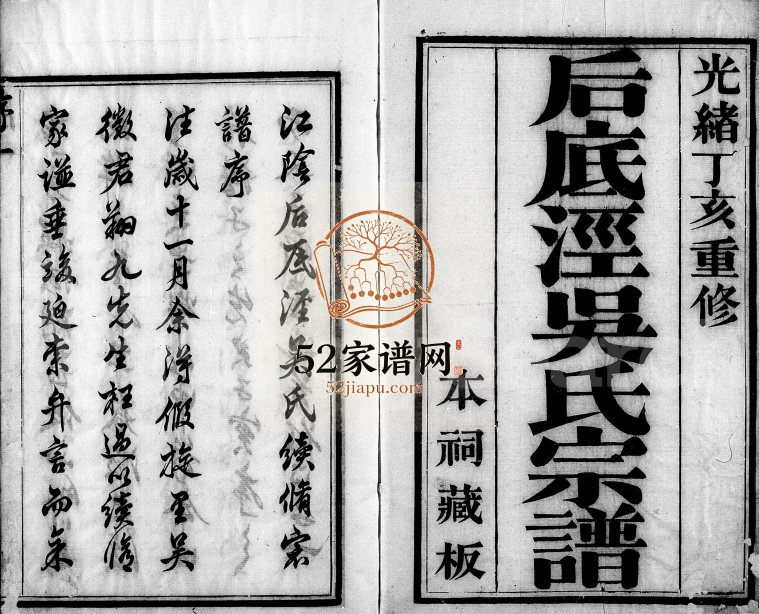 光緒丁亥重修
后底涇吳氏宗譜
本祠藏板
江陰后底涇吳氏續脩宗
譜序
往歲十一月余得假旋里吳
徵君翔九先生枉過以續脩
家譜垂竣廹索弁言而余
序一
52家谱网
52jiapu.com